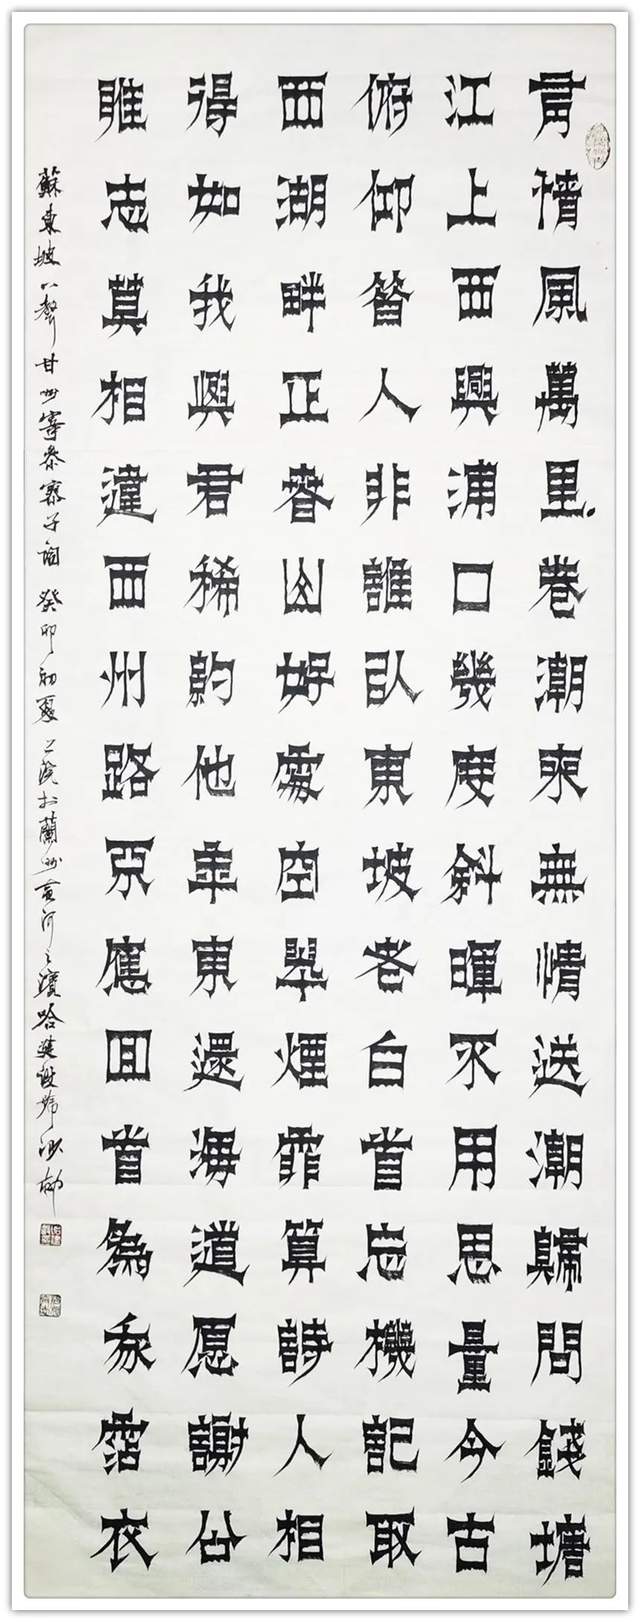 有情風萬里卷潮來無情送潮歸問錢塘
江上西興浦口幾度斜暉不用思量今古
俯仰昔人非誰似東坡老白首忘機記取
西湖畔正春山好處空翠煙霏算詩人相
得如我與君稀約他年東還海道愿謝公
雅志莫相違西州路不應回首為我霑衣
蘇東坡八聲甘州寄參寥子詞 癸卯初夏 於蘭州黃河之濱哈建設